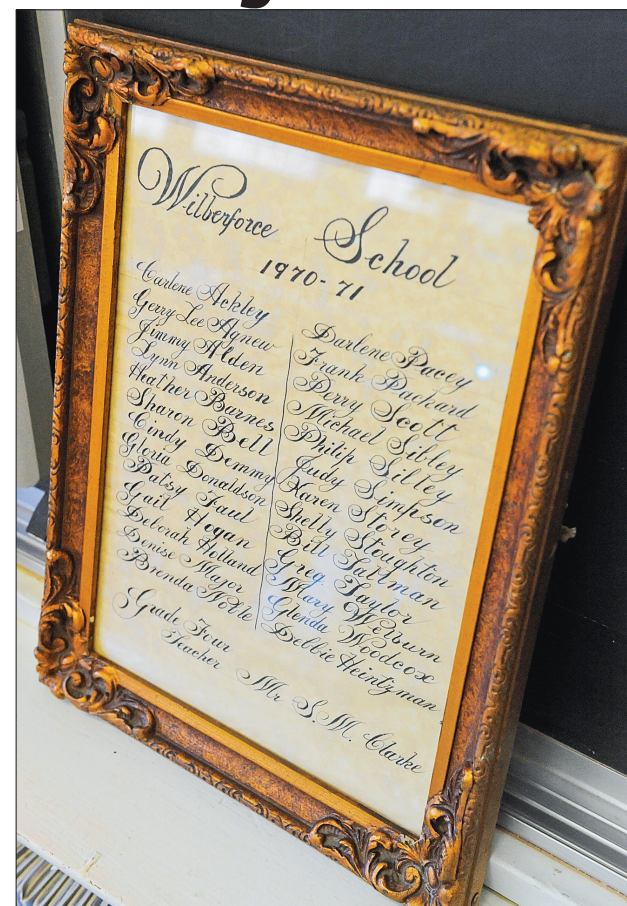 Wilberforce School
1970-71
Carlene Ackley
Gerry Lee Agnew
Jimmy Alden
Lynn Anderson
Heather Barnes
Sharon Bell
Cindy Demmy
Gloria Donaldson
Patsy Faul
Gail Hogan
Deborah Holland
Denise Major
Brenda Noble
Darlene Pacey
Frank Packard
Perry Scott
Michael Sibley
Philip Silley
Judy Simpson
Karen Storey
Shelly Stoughton
Bill Saltman
Greg Taylor
Mary Welburn
Glenda Woodcox
Debbie Heintzman
Grade Four
Teacher Mr S.M. Clarke